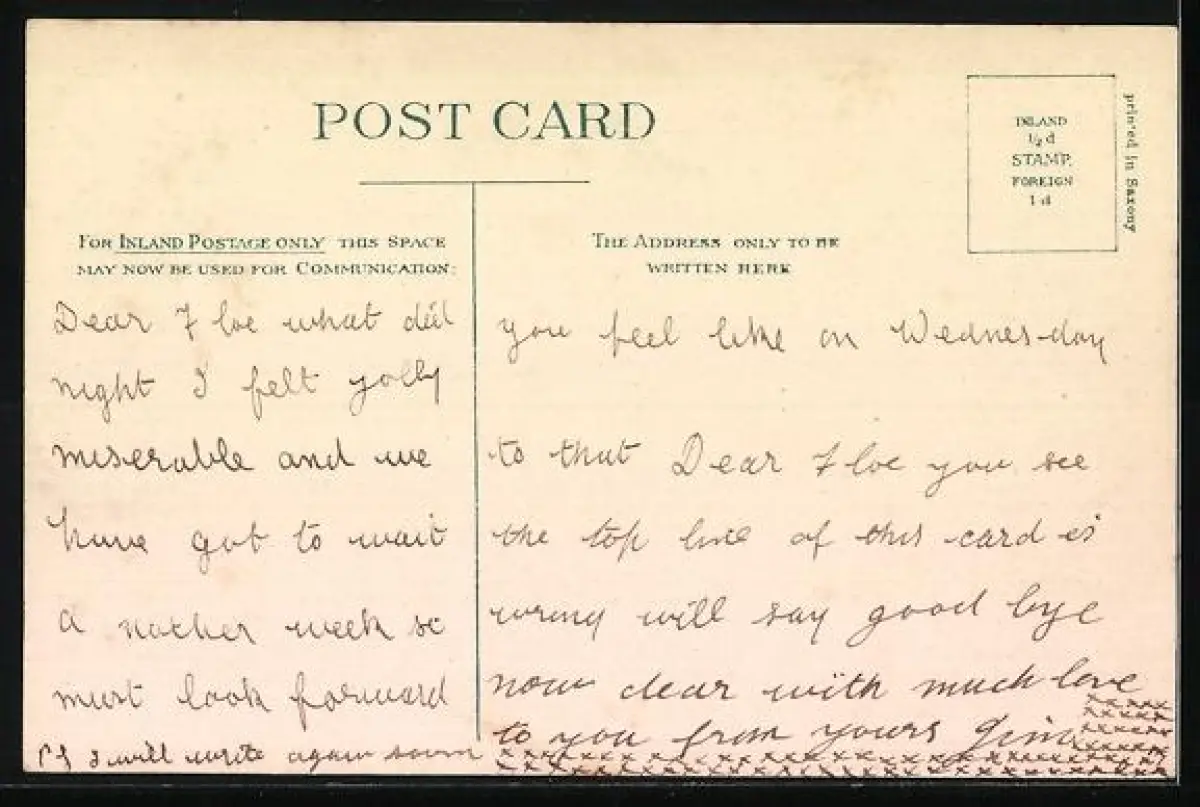 POST CARD
INLAND
½ d
STAMP.
FOREIGN
1 d
printed in Saxony
FOR INLAND POSTAGE ONLY THIS SPACE
MAY NOW BE USED FOR COMMUNICATION:
THE ADDRESS ONLY TO BE
WRITTEN HERE
Dear Floe what did
night I felt yolly
miserable and we
have got to wait
a nother week so
must look forward
PS I will write again soon
you feel like on Wednesday
to that Dear Floe you see
the top line of this card is
wrong will say good bye
now dear with much love
to you from yours